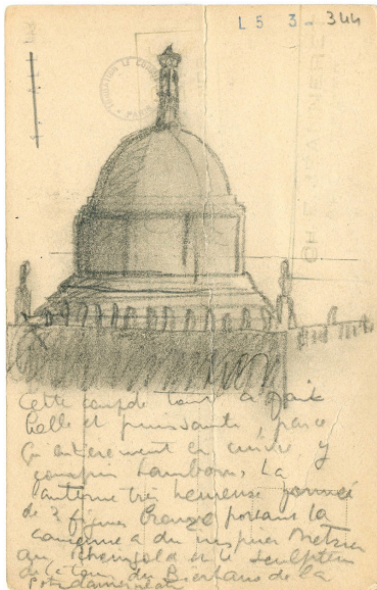 L5 3-344
FONDATION LE CORBUSIER
PARIS
Cette coupole tout à fait
belle et puissante, parce
qu'entièrement en cuivre y
compris tambour, La
lanterne très heureuse formée
de 3 figures bronze portant la
couronne a du inspirer Metzner
au Rheingold et le sculpteur
de la
Potsdamerplatz